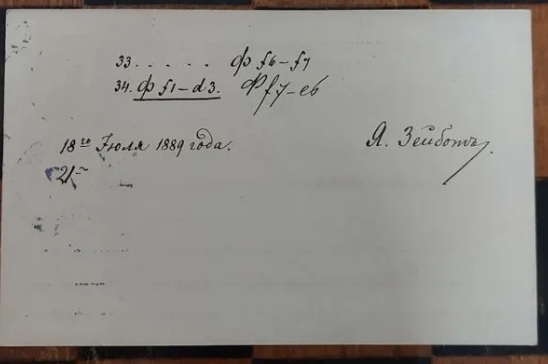 33. . . . . Ф f6–f7
34. Ф f1–d3. Ф f7–e6
18го Іюля 1889 года. Я. Зейботъ.
21